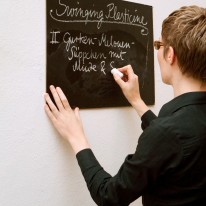 Swinging Plasticine
II Gurken-Melonen-
Süppchen mit
Minze &